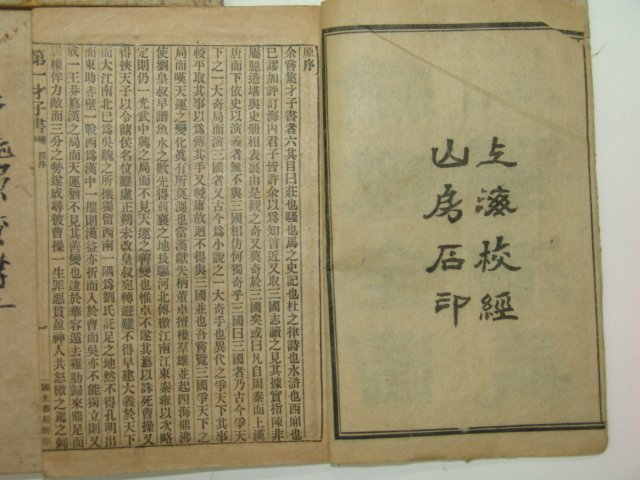 上海校經
山房石印
原序
余嘗集才子書者六其目曰莊也騷也馬之史記也杜之律詩也水滸也西廂也
已謬加評訂海內君子皆許余以爲知言近又取三國志讀之見其據實指陳非
屬臆造堪與史册相表裏由是觀之奇又莫奇於三國矣或曰凡自周秦而上漢
唐而下依史以演義者無不與三國相仿何獨奇乎三國曰三國者乃古今爭天
下之一大奇局而演三國者又古今爲小說之一大奇手也異代之爭天下其事
較平取其事以爲傳其手又勞庸故迥不得與三國並也吾嘗覽三國爭天下之
局而嘆天運之變化眞有所莫測也當漢獻失柄董卓擅權羣雄並起四海鼎沸
使劉皇叔早諧魚水之歡先得荊襄之地長驅河北傳檄江南江東秦雍以次略
定則仍一光武中興之局而不見天運之善變也惟卓不遂其簒以誅死曹操又
得挾天子以令諸侯名位雖虛正朔未改皇叔宛轉避難不得早建大義於天下
而大江南北已爲吳魏之所攘獨留西南一隅爲劉氏託足之地然不得孔明出
而東助赤壁一戰西爲漢中一摧則漢益亦折而入於曹而吳亦不能獨立則又
成一王莽簒漢之局而天運猶不見其善變也逮於華容遁去雞肋歸來鼎足而
居權侔力敵而三分之勢遂成尋彼曹操一生罪惡貫盈神人共怒檄之罵之刺
第一才子書 原序 一